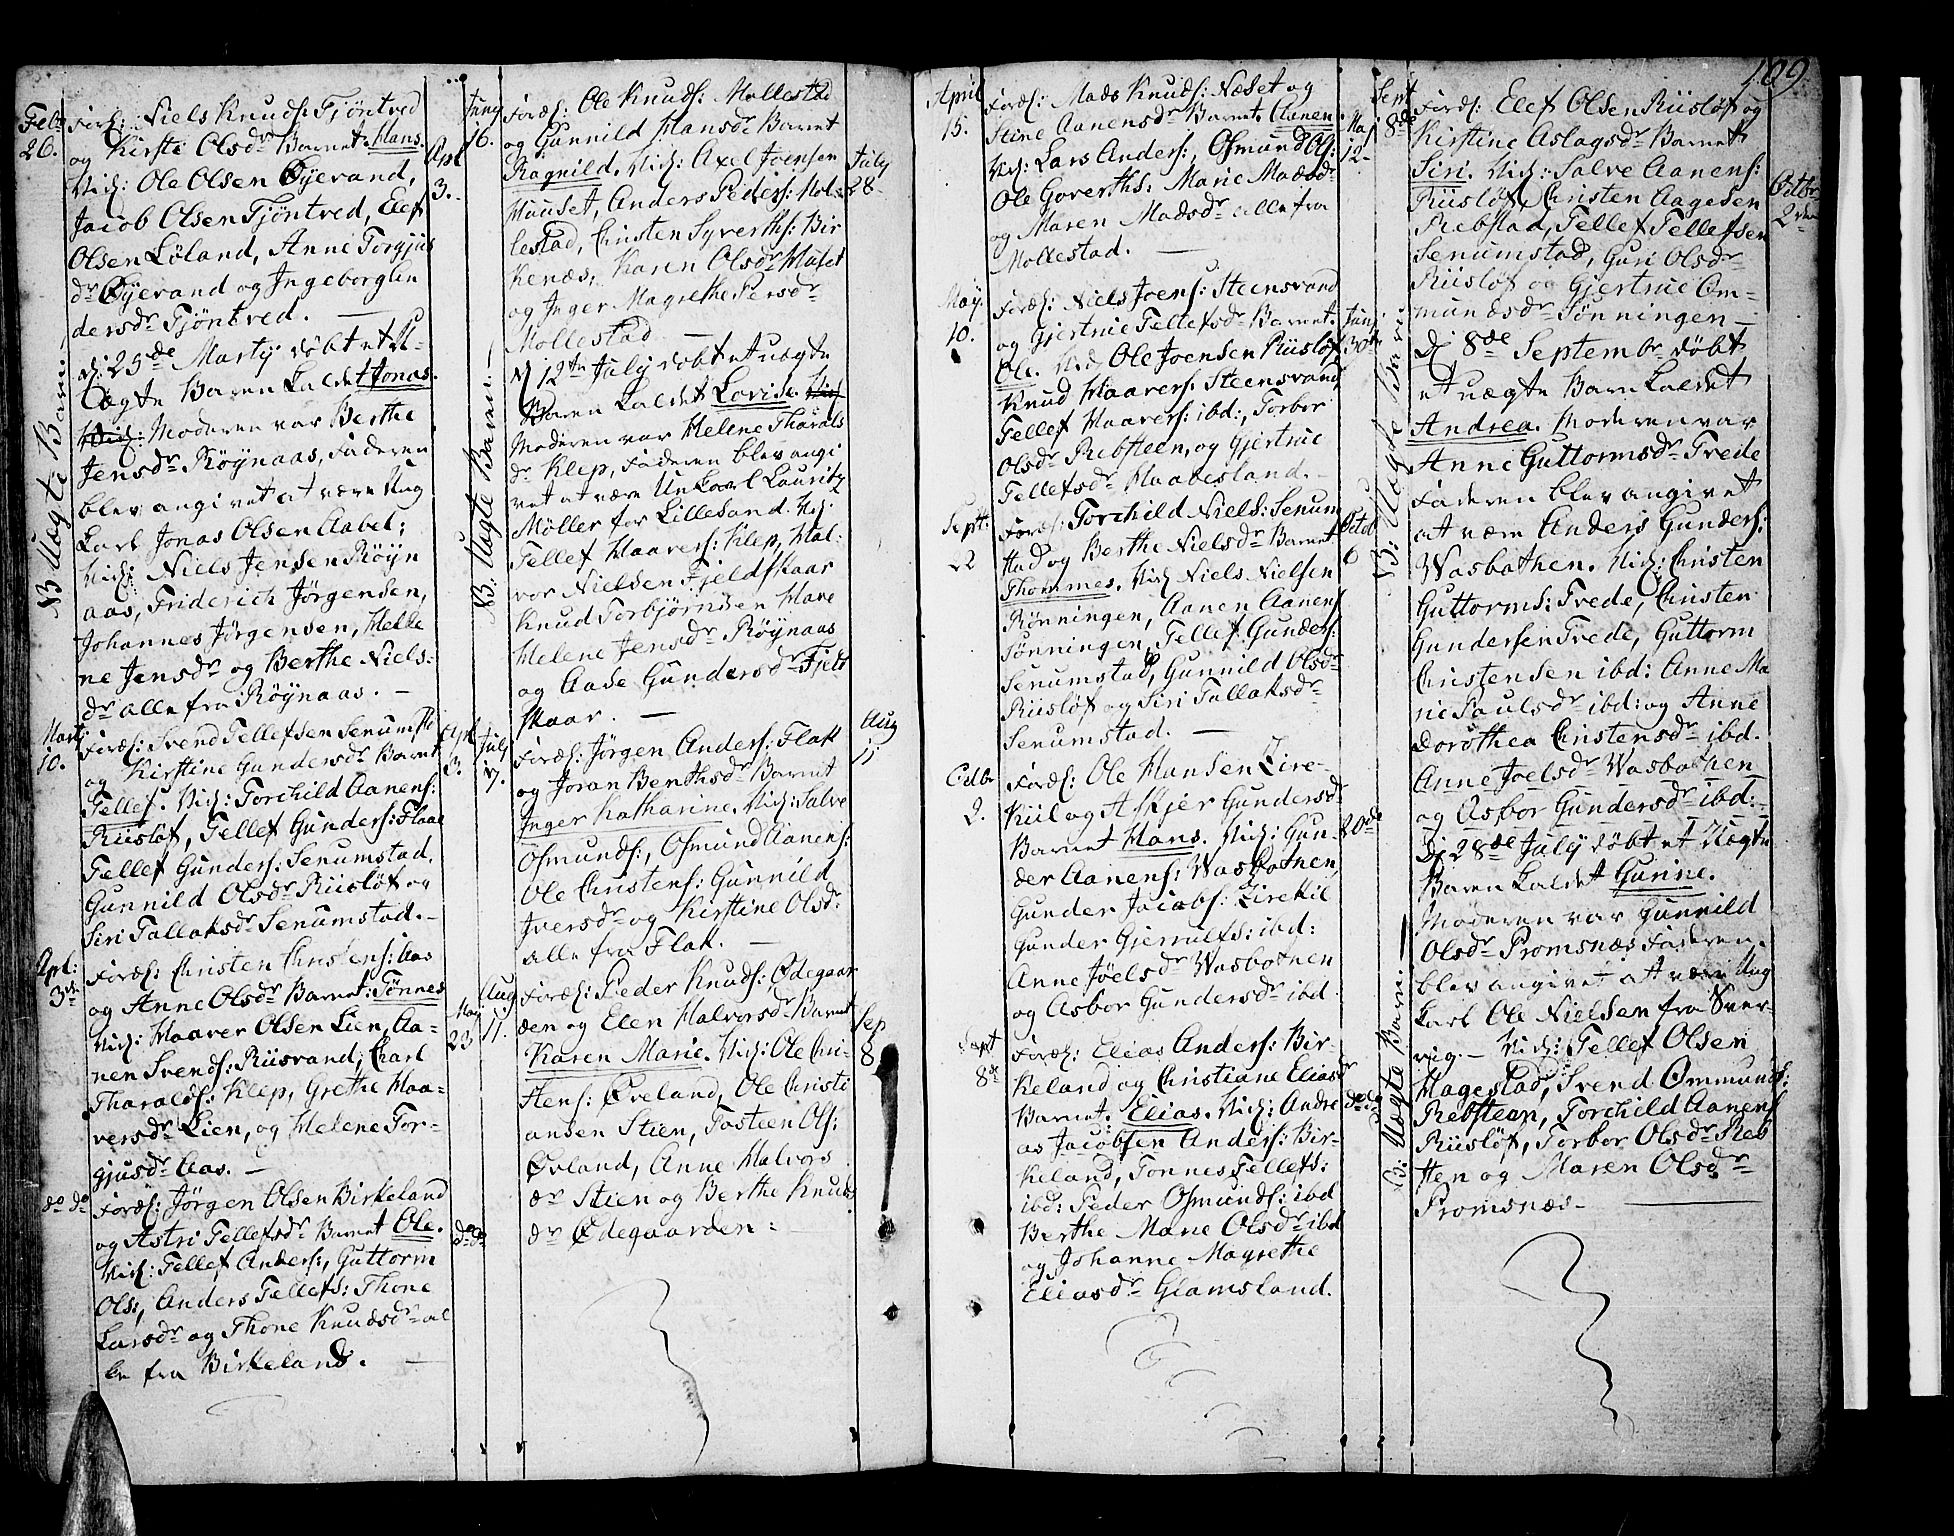 109
Feb:
26.
Foræ: Niels Knuds: Tjöntved
og Kirsti Olsdr Barnet: Hans.
Vid: Ole Olsen Öyevand,
Jacob Olsen Tjöntved, Elef
Olsen Löland, Anne Torgjus
dr Öyevand og Ingeborg En
dersdr Tjöntved. —
Apl
3.
NB Uægte Barn.
d: 25de Martij döbt et U-
ægte Barn kaldet Jonas.
Vid: Moderen var Berthe
Jensdr Röynaas, Faderen
blev angivet at være Ung
karl Jonas Olsen Aabel;
Vid: Niels Jensen Röyn
aas, Friderich Jörgensen,
Johannes Jörgensen, Hele
ne Jensdr og Berthe Niels:
dr alle fra Röynaas. —
Martj
10.
Foræ: Svend Tellefsen Senumst
og Kirstine Gundersdr Barnet
Tellef. Vid: Torchild Aanens:
Riislöf, Tellef Gunders: Flaae
Tellef Gunders: Senumstad,
Gunnild Olsdr Riislöf og
Siri Tallaksdr Senumstad. —
Apl
3.
Apl:
3de
Foræ: Christen Christens: Aas
og Anne Olsdr Barnet: Tönnes
Vid: Haaver Olsen Lien, Aa-
nen Svends: Riisvand, Carl
Tharalds: Klep, Grethe Haa-
versdr Lien, og Helene Tor-
gjusdr Aas. —
May
23
do do
Foræ: Jörgen Olsen Birkeland
og Astri Tellefsdr Barnet Ole.
Vid: Tellef Anders:, Guttorm
Ols:, Anders Tellefs: Thone
Larsdr og Thone Knudsdr al
le fra Birkeland. —
do do
Juny
16.
Foræ: Ole Knuds: Mollestad
og Gunnild Hansdr Barnet
Ragnild. Vid: Axel Joensen
Hauset, Anders Peders: Mol-
lestad, Christen Syverths: Bir
kenæs, Karen Olsdr Huset
og Inger Magrethe Persdr
Mollestad —
July
28.
NB: Uægte Barn. —
d 12te July döbt et uægte
Barn kaldet Lovise. Vid
Moderen var Helene Tharals
dr Klep, Faderen blev angi
vet at være Unkarl Lauritz
Möller for Lillesand. Vid:
Tellef Haavers: Klep, Hal-
vor Nielsen Fjeldskaar
Knud Torbjörnsen Have
Helene Jensdr Röynaas
og Aase Gundersdr Fjeld
skaar. —
July
7.
Foræ: Jörgen Anders: Flak
og Joran Berthsdr Barnet
Inger Katharine. Vid: Salve
Osmunds:, Osmund Aanens:
Ole Christens: Gunnild
Iversdr og Kirstine Olsdr
alle fra Flak. —
Aug
11
Aug
11.
Foræ: Peder Knuds: Ödegaar
den og Elen Halvorsdr Barnet
Karen Marie. Vid: Ole Chri-
stens: Öveland, Ole Christi
ansen Stien, Tosteen Ols:
Övland, Anne Halvors
dr Stien og Berthe Knuds
dr Ödegaarden. —
Sep
8
April
15.
Foræ: Mads Knuds: Næset og
Stine Aanensdr Barnet Aanen
Vid: Lars Anders:, Osmund Ols:
Ole Goverths: Marie Madsdr
og Maren Madsdr alle fra
Mollestad. —
Maj
12.
May.
10.
Foræ: Niels Joens: Steensvand
og Gjertrue Tellefsdr Barnet.
Ole. Vid Ole Joensen Riislöf
Knud Haavers: Steensvand
Tellef Haavers: ibd:, Torbor
Olsdr Rebsteen, og Gjertrue
Tellefsdr Haabesland. —
Junj
30te
Septt:
22
Foræ: Torchild Niels: Senum
stad og Berthe Nielsdr Barnet
Thommes. Vid Niels Nielsen
Rönningen, Aanen Aanens
Tönningen, Tellef Gunders:
Senumstad, Gunnild Olsdr
Riislöf og Siri Tallaksdr
Senumstad. —
Octob
6
Octbr
2.
Foræ: Ole Hansen Kire-
kiil og Askjer Gundersdr
Barnet Hans. Vid: Gun-
der Aanens: Wasbotnen
Gunder Jacobs: Kirekil
Gunder Gjerrulfs: ibd:
Anne Jöelsdr Wasbotnen
og Asbor Gundersdr ibd
20de
Sept
8de
Foræ: Elias Anders: Bir-
keland og Christiane Eliasdr
Barnet. Elias. Vid: Andre
as Jacobsen Anders: Bir-
keland, Tonnes Tellefs:
ibd: Peder Osmunds: ibd
Berthe Marie Olsdr ibd
og Johanne Magrethe
Eliasdr Glamsland.
do do
Sept
8de
Foræ: Elef Olsen Riislöf og
Kirstine Aslagsdr Barnet
Siri. Vid: Salve Aanens:
Riislöf, Christen Aagesen
Rebstad, Tellef Tellefsen
Senumstad, Guri Olsdr
Riislöf og Gjertrue Om-
mundsdr Tönningen —
Octbr
2den
NB: Uægte Barn.
D 8de Septembr döbt
et uægte Barn kaldet
Andrea. Moderen var
Anne Guttormsdr Trede
Faderen blev angivet
at være Anders Gunders:
Wasbothen. Vid: Christen
Guttorms: Trede, Christen
Gundersen Trede, Guttorm
Christensen ibd: Anne Ma
rie Paulsdr ibd: og Anne
Dorothea Christensdr ibd.
Anne Joelsdr Wasbothen
og Asbor Gundersdr ibd: —
NB: Uægte Barn: —
D 28de July döbt et Uægte
Barn kaldet Gunne.
Moderen var Gunnild
Olsdr Promsnæs Faderen
blev angivet at være Ung
karl Ole Nielsen fra Sver-
vig. — Vid: Tellef Olsen
Hagestad, Svend Ommunds:
Rebsteen, Torchild Aanens
Riislöf, Torbor Olsdr Reb
sten og Maren Olsdr
Promsnæs —